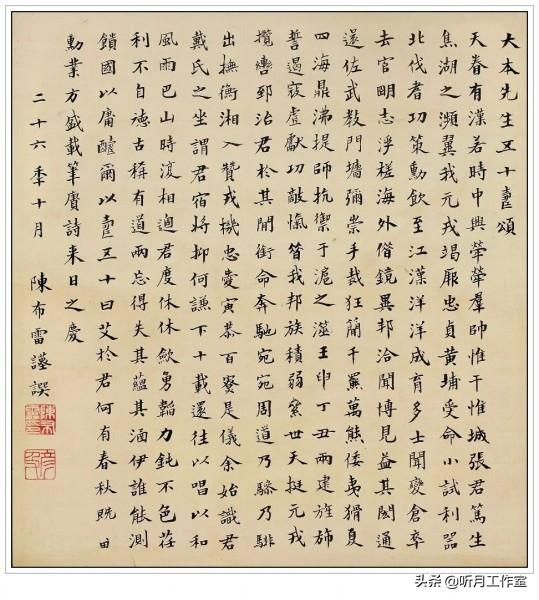 大本先生五十壽頌
天眷有漢若時中興犖犖羣帥惟干惟城張君篤生
焦湖之瀕翼我元戎竭厥忠貞黃埔受命小試利器
北伐耆功策勳飲至江漢洋洋成育多士聞變倉卒
去官明志浮槎海外借鏡異邦洽聞博見益其閎通
遂佐武教門墻彌崇手裁狂簡千羆萬熊倭夷猾夏
四海鼎沸提師抗禦于滬之澨壬申丁丑兩建旌斾
誓遏寇虐獻功敵愾我邦族積弱絫世天挺元戎
攬轡郅治君於其閒銜命奔馳宛宛周道乃驂乃騑
出撫衡湘入贊戎機忠愛寅恭百寮是儀余始識君
戴氏之坐謂君宿將抑何謙下十載還往以唱以和
風雨巴山時復相過君度休休斂勇韜力鈍不色荏
利不自德古稱有道兩忘得失其蘊其涵伊誰能測
饋國以庸醻爾以壽五十曰艾於君何有春秋既
勳業方盛載筆賡詩来日之慶
二十六季十月
陳布雷謹譔
头条 @听月工作室